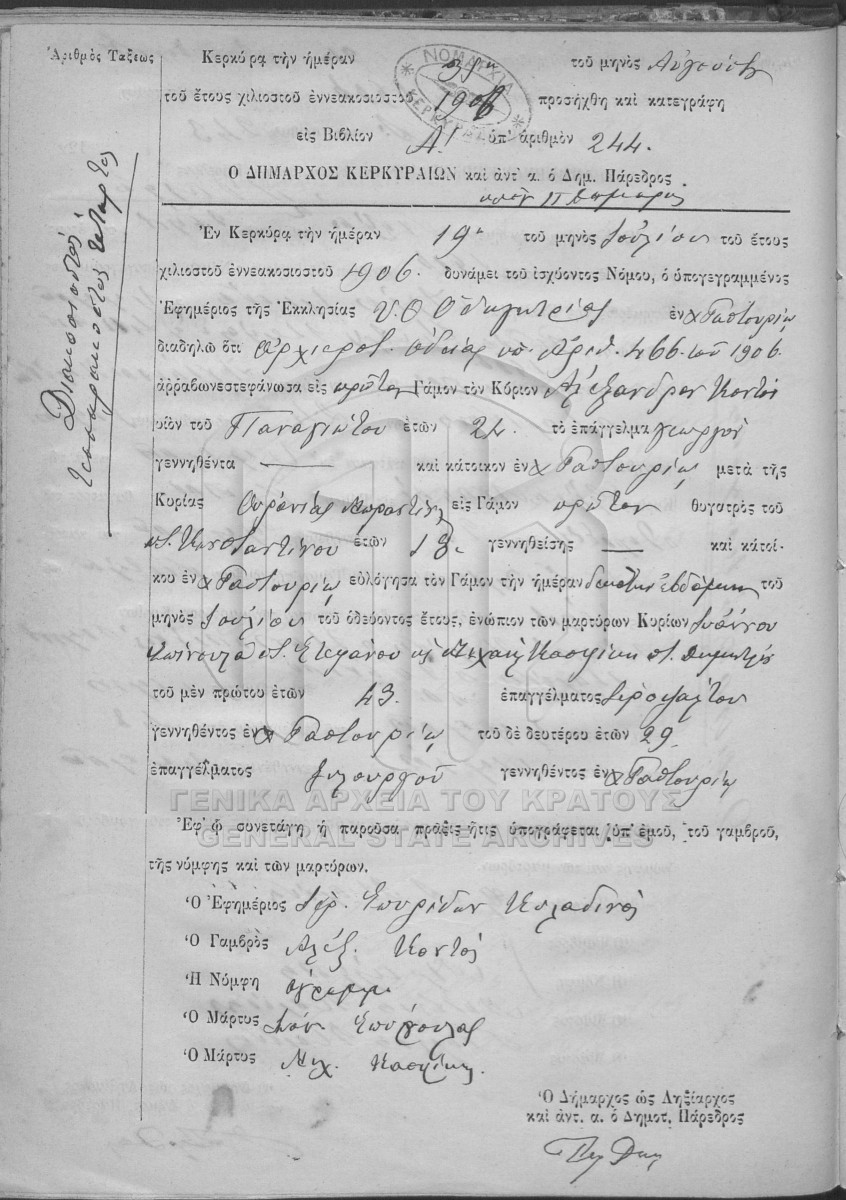 Ἀριθμὸς Τάξεως
Διακοσιοστὸς
τεσσαρακοστὸς τέταρτος
ΝΟΜΑΡΧΙΑ
ΚΕΡΚΥΡΑΣ
Κερκύρᾳ τὴν ἡμέραν τοῦ μηνὸς Αὐγούστου
τοῦ ἔτους χιλιοστοῦ ἐννεακοσιοστοῦ 1906 προσήχθη καὶ κατεγράφη
εἰς Βιβλίον Α! ὑπ' ἀριθμὸν 244.
Ο ΔΗΜΑΡΧΟΣ ΚΕΡΚΥΡΑΙΩΝ καὶ ἀντ' α. ὁ Δημ. Πάρεδρος
Ἐν Κερκύρᾳ τὴν ἡμέραν 19η τοῦ μηνὸς Ἰουλίου τοῦ ἔτους
χιλιοστοῦ ἐννεακοσιοστοῦ 1906. δυνάμει τοῦ ἰσχύοντος Νόμου, ὁ ὑπογεγραμμένος
Ἐφημέριος τῆς Ἐκκλησίας Υ. Θ Ὁδηγητρίας ἐν χ Γαστουρίῳ
διαδηλῶ ὅτι Ἀρχιερατ. ἀδείᾳ ὑπ. Ἀριθ. 466. τοῦ 1906.
ἀρραβωνεστεφάνωσα εἰς πρῶτον Γάμον τὸν Κύριον Ἀλέξανδρον Κοντὸν
υἱὸν τοῦ Παναγιώτου ἐτῶν 24. τὸ ἐπάγγελμα γεωργὸν
γεννηθέντα — καὶ κάτοικον ἐν χ Γαστουρίῳ μετὰ τῆς
Κυρίας Οὐρανίας εἰς Γάμον πρῶτον θυγατρὸς τοῦ
π. Κωνσταντίνου ἐτῶν 18. γεννηθείσης — καὶ κατοί-
κου ἐν χ Γαστουρίῳ εὐλόγησα τὸν Γάμον τὴν ἡμέραν δεκάτην ἑβδόμην τοῦ
μηνὸς Ἰουλίου τοῦ ὁδεύοντος ἔτους, ἐνώπιον τῶν μαρτύρων Κυρίων Ἰωάννου
π. Στεφάνου κ Μιχαὴλ π. Δημητρίου
τοῦ μὲν πρώτου ἐτῶν 43 ἐπαγγέλματος ἱεροψάλτου
γεννηθέντος ἐν χ Γαστουρίῳ τοῦ δὲ δευτέρου ἐτῶν 29
ἐπαγγέλματος ξυλουργοῦ γεννηθέντος ἐν χ Γαστουρίῳ
ΓΕΝΙΚΑ ΑΡΧΕΙΑ ΤΟΥ ΚΡΑΤΟΥΣ
GENERAL STATE ARCHIVES
Ἐφ' ᾧ συνετάγη ἡ παροῦσα πρᾶξις ἥτις ὑπογράφεται ὑπ' ἐμοῦ, τοῦ γαμβροῦ,
τῆς νύμφης καὶ τῶν μαρτύρων.
Ὁ Ἐφημέριος Ἱερ. Σπυρίδων
Ὁ Γαμβρὸς Ἀλέξ. Κοντὸς
Ἡ Νύμφη ἀγράμμ.
Ὁ Μάρτυς Ἰωάν.
Ὁ Μάρτυς Μιχ.
Ὁ Δήμαρχος ὡς Ληξίαρχος
καὶ ἀντ. α. ὁ Δημοτ. Πάρεδρος